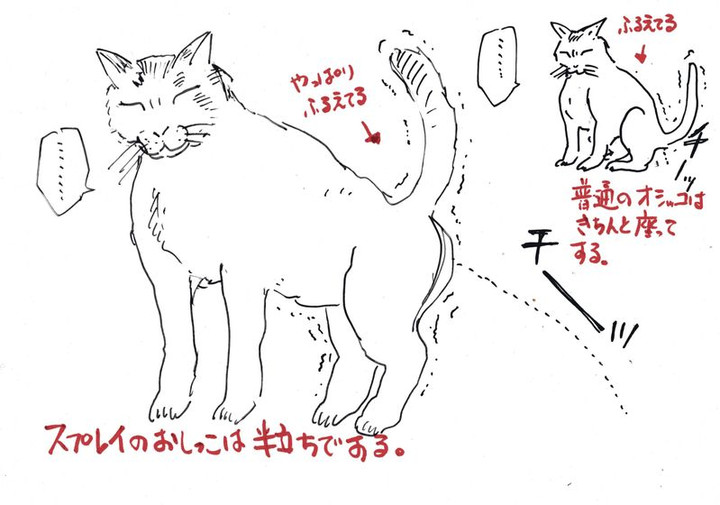 ふるえてる
やっぱり
ふるえてる
チーッ
普通のオシッコは
きちんと座って
する。
チーッ
スプレイのおしっこは半立ちでする。